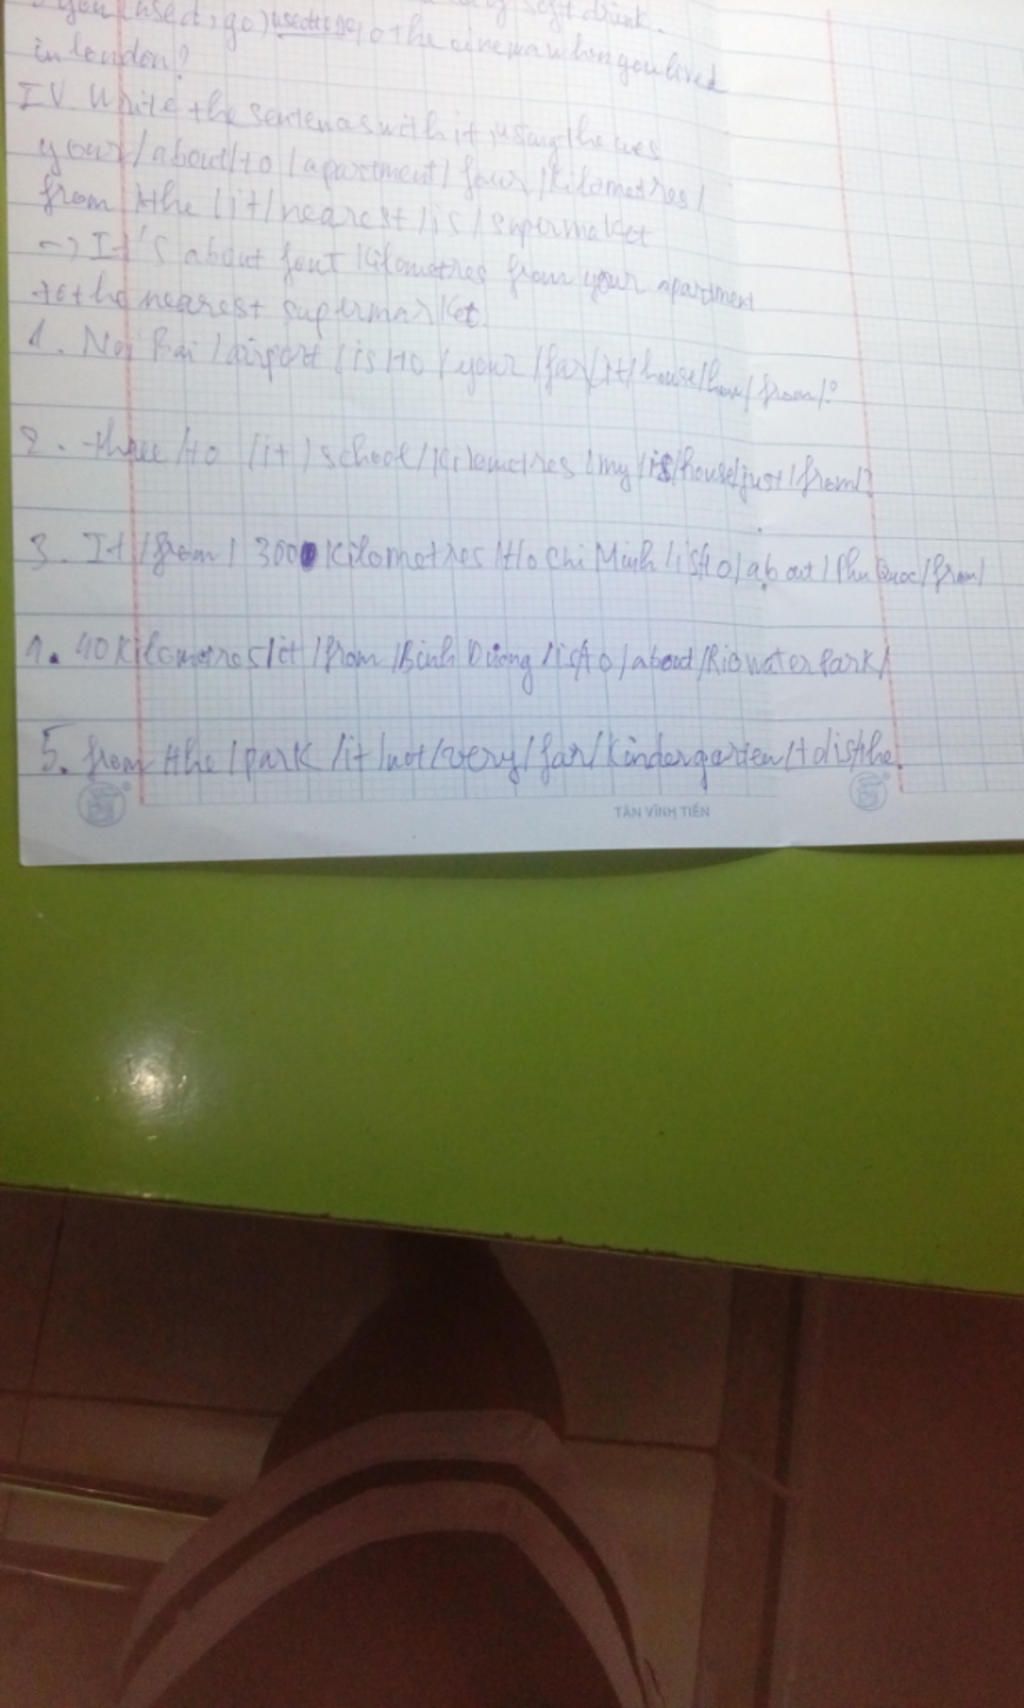 you (used, go) to the cinema when you lived
in london?
IV Write the sentences with it, using the
your/about/to/apartment/four/kilometres/
from/the/it/nearest/is/supermaket
-> It's about four kilometres from your apartment
to the nearest supermarket.
1. Noi Bai/airport/is/to/your/far/it/house/how/from/?
2. three/to/it/school/kilometres/my/is/house/just/from/?
3. It/from/300 kilometres/Ho Chi Minh/is/to/about/Phu Quoc/from/
4. 40 kilometres/it/from/Binh Duong/is/to/about/Rio water Park/
5. from/the/park/it/not/very/far/kindergarten/to/is/the.
TÂN VĨNH TIẾN